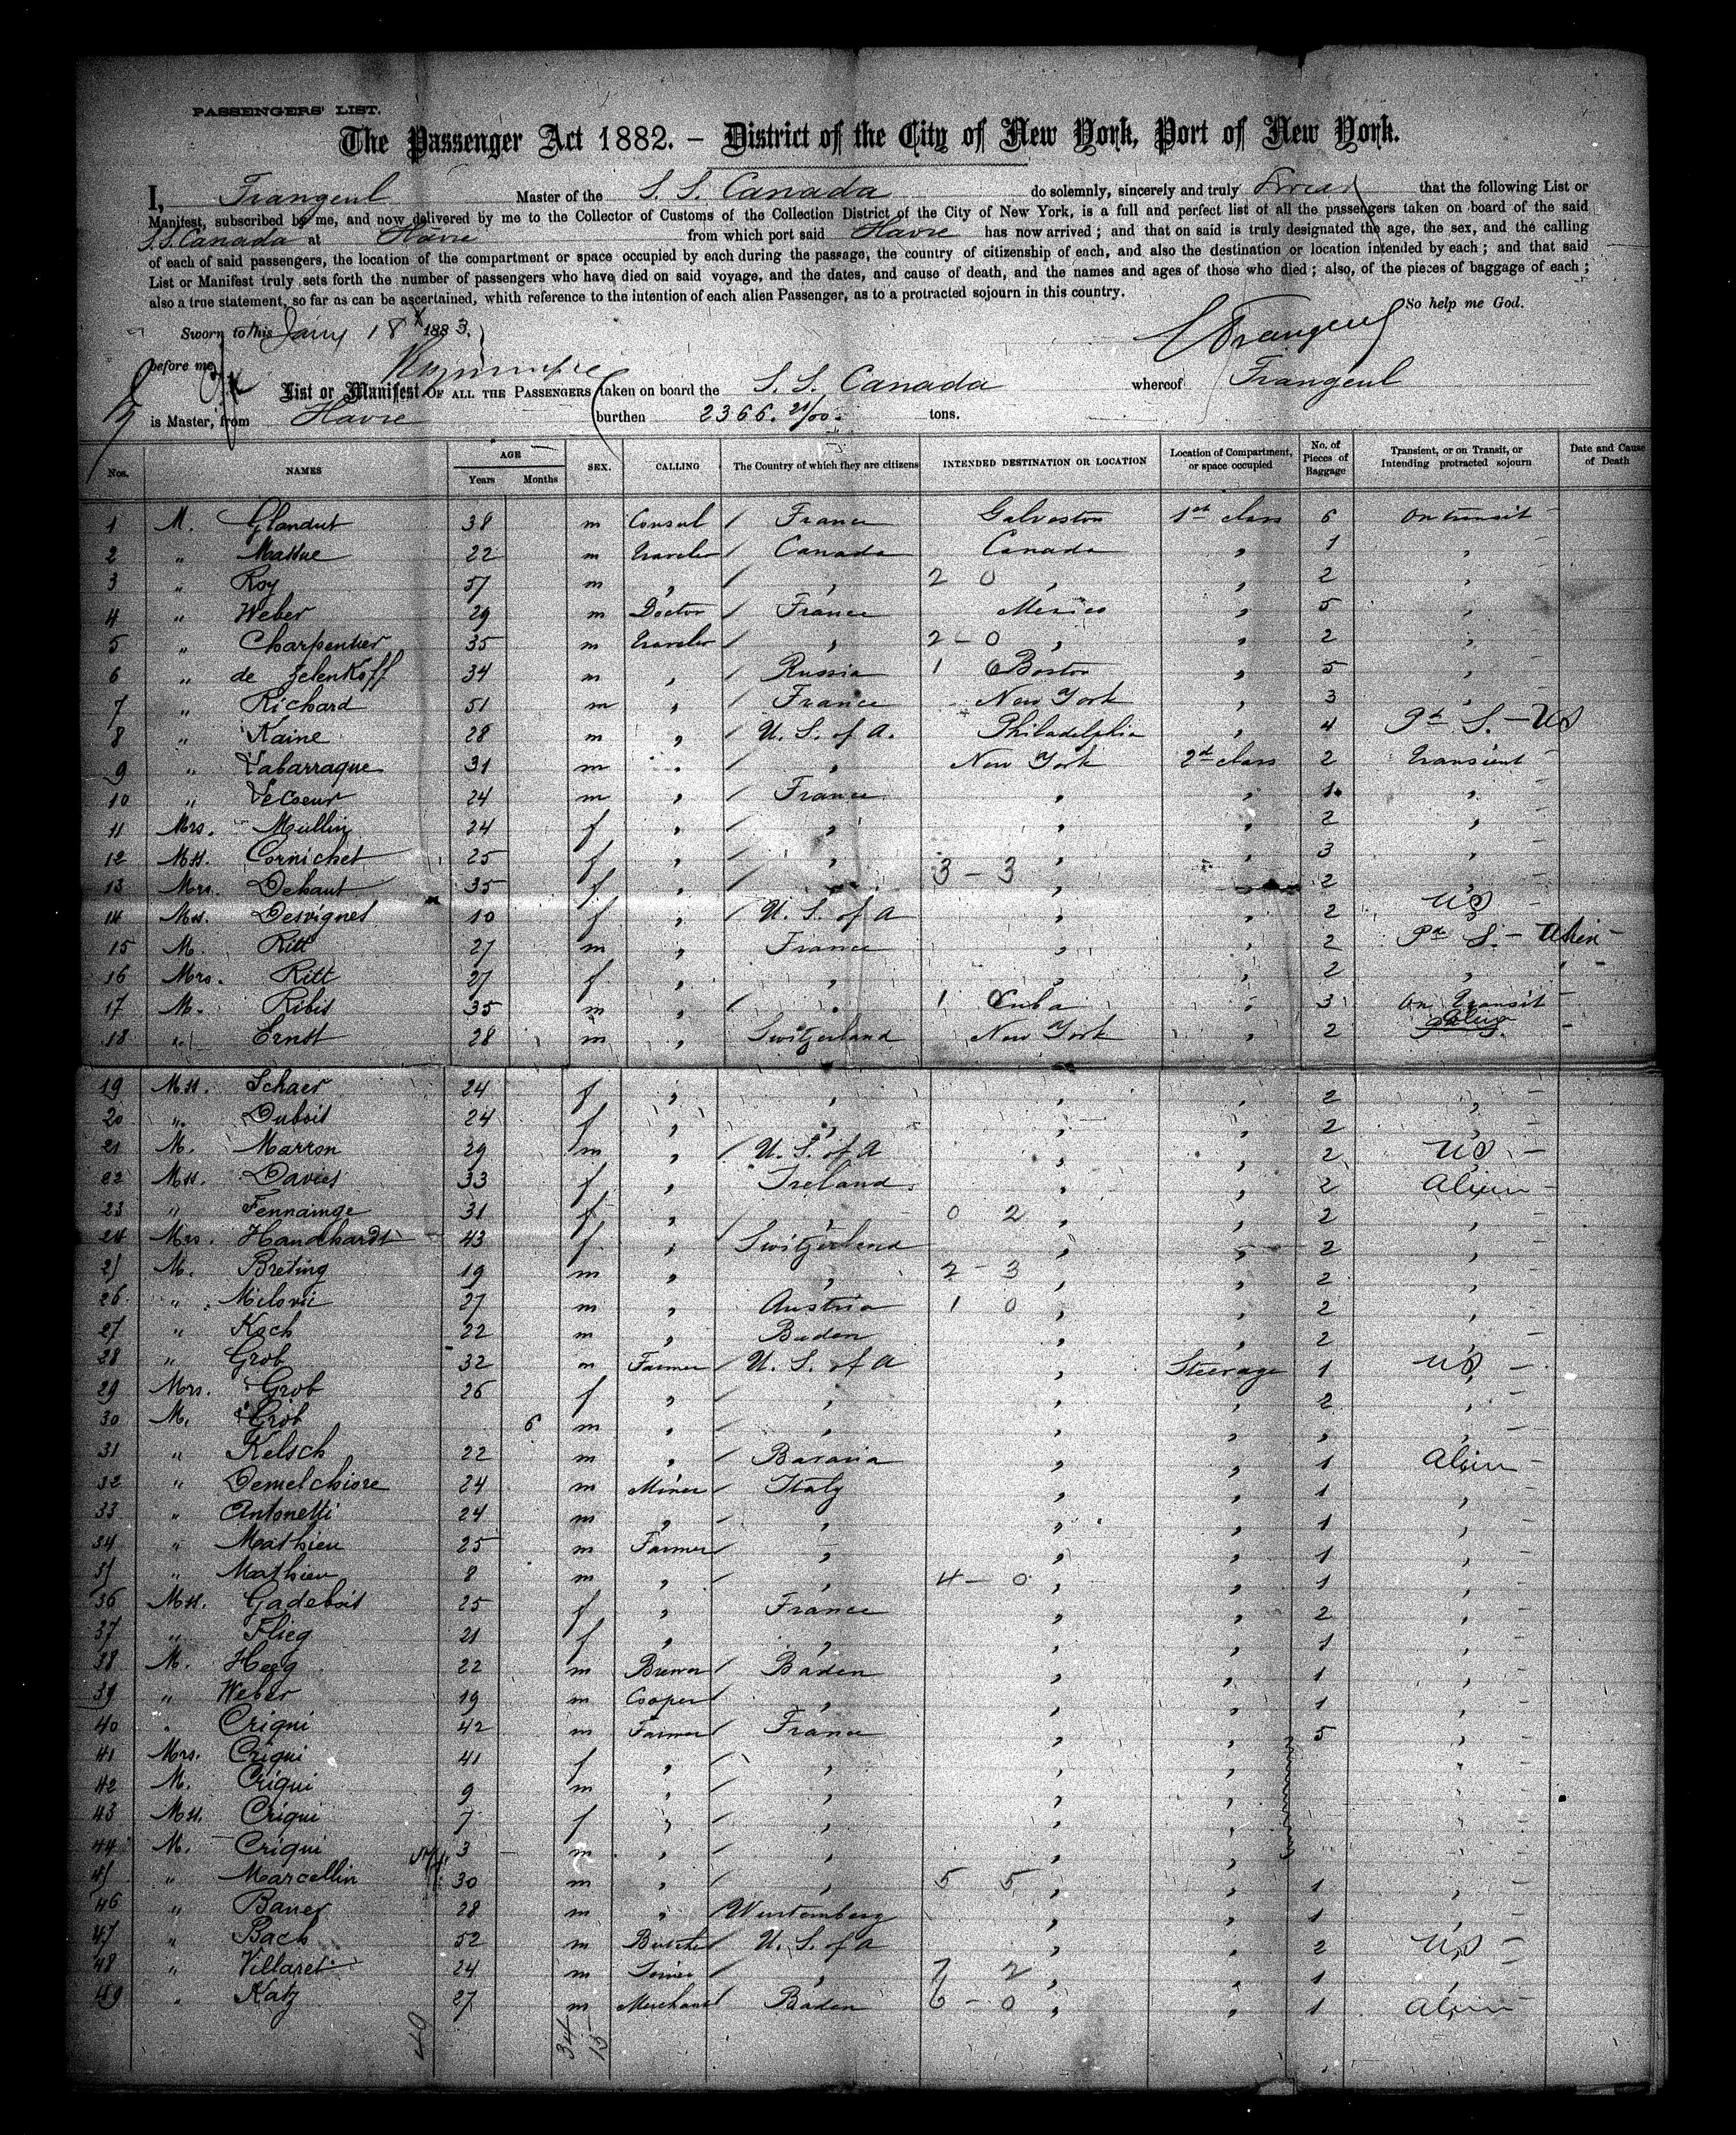 PASSENGERS' LIST.
The Passenger Act 1882. – District of the City of New York, Port of New York.
I, Frangeul Master of the S. S. Canada do solemnly, sincerely and truly swear that the following List or
Manifest, subscribed by me, and now delivered by me to the Collector of Customs of the Collection District of the City of New York, is a full and perfect list of all the passengers taken on board of the said
S.S. Canada at Havre from which port said Havre has now arrived; and that on said is truly designated the age, the sex, and the calling
of each of said passengers, the location of the compartment or space occupied by each during the passage, the country of citizenship of each, and also the destination or location intended by each; and that said
List or Manifest truly sets forth the number of passengers who have died on said voyage, and the dates, and cause of death, and the names and ages of those who died; also, of the pieces of baggage of each;
also a true statement, so far as can be ascertained, whith reference to the intention of each alien Passenger, as to a protracted sojourn in this country.
So help me God.
Sworn to this Jany 18 1883.
Frangeul
before me
List or Manifest OF ALL THE PASSENGERS taken on board the S. S. Canada whereof Frangeul
is Master, from Havre burthen 2366. 21/00 tons.
Nos. NAMES AGE Years Months SEX. CALLING The Country of which they are citizens INTENDED DESTINATION OR LOCATION Location of Compartment, or space occupied No. of Pieces of Baggage Transient, or on Transit, or Intending protracted sojourn Date and Cause of Death
1 M. Glandut 38 m Consul / France Galveston 1st class 6 on transit -
2 " Massue 22 m traveler / Canada Canada " 1 "
3 " Roy 57 m " / " 2 0 " " 2 "
4 " Weber 29 m Doctor / France Mexico " 5 "
5 " Charpentier 35 m traveler / " 2 - 0 " " 2 "
6 " de Zelenkoff 34 m " / Russia 1 Boston " 5 "
7 " Richard 51 m " / France New York " 3 "
8 " Kaine 28 m " / U. S. of A. Philadelphia " 4 Pd S. - US
9 " Labarraque 31 m " / " New York 2d class 2 transient -
10 " LeCoeur 24 m " / France " " 1 "
11 Mrs. Mullin 24 f " / " " " 2 "
12 Mss. Cornichet 25 f " / " " " 3 "
13 Mrs. Debaut 35 f " / " 3 - 3 " " 2 "
14 Mss. Desvignes 10 f " / U. S. of A " " 2 US
15 M. Ritt 27 m " France " " 2 Pd S. - Alien -
16 Mrs. Ritt 27 f " " " " 2 "
17 M. Ribis 35 m " / " 1 Cuba " 3 on transit -
18 " Ernst 28 m " Switzerland New York " 2
19 Mss. Schaer 24 f " " " " 2 "
20 " Dubois 24 f " " " " 2 "
21 M. Marron 29 m " / U. S. of A " " 2 US -
22 Mss. Davies 33 f " Ireland " " 2 Alien -
23 " 31 f " " 0 2 " " 2 "
24 Mrs. Hanchardt 43 f " Switzerland " " 2 "
25 M. Breting 19 m " " 2 - 3 " " 2 "
26 " Milovic 27 m " Austria 1 0 " " 2 "
27 " Koch 22 m " Baden " " 2 "
28 " Grob 32 m Farmer / U. S. of A " Steerage 1 US -
29 Mrs. Grob 26 f " / " " " 2 "
30 M. Grob 6 m " / " " " " "
31 " Kelsch 22 m " / Bavaria " " 1 Alien -
32 " Demelchiore 24 m Miner / Italy " " 1 "
33 " Antonetti 24 m " / " " " 1 "
34 " Mathieu 25 m Farmer / " " " 1 "
35 " Mathieu 8 m " / " 4 - 0 " " 1 "
36 Mss. Gadebois 25 f " / France " " 2 "
37 " Flieg 21 f " / " " " 1 "
38 M. Heeg 22 m Brewer / Baden " " 1 "
39 " Weber 19 m Cooper / " " " 1 "
40 " Criqui 42 m Farmer / France " " 5 "
41 Mrs. Criqui 41 f " / " " " "
42 M. Criqui 9 m " / " " " "
43 Mss. Criqui 7 f " / " " " "
44 M. Criqui 3 m " / " " " "
45 " Marcellin 30 m " / " 5 5 " " 1 "
46 " Bauer 28 m " Wurtemberg " " 1 "
47 " Bach 52 m Butcher / U. S. of A " " 2 US -
48 " Villaret 24 m / " 7 2 " " 1 "
49 " Katz 27 m Merchant / Baden 6 - 0 " " 1 Alien -
40 34 15